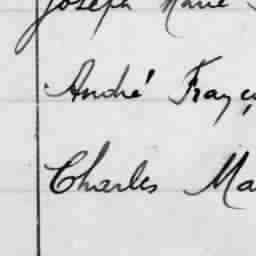 Joseph Marie
André Franç
Charles Ma